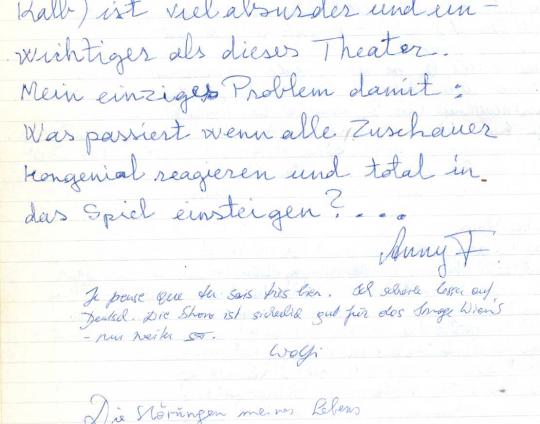 Kalb) ist viel absurder und un-
wichtiger als dieses Theater.
Mein einziges Problem damit:
Was passiert wenn alle Zuschauer
kongenial reagieren und total in
das Spiel einsteigen?...
Anny F.
Je pense que tu sais très bien. auf
Deutsch. Die Show ist sicherlich gut für das Image Wiens
- nur weiter so.
Wolfi
Die Störungen meines Lebens